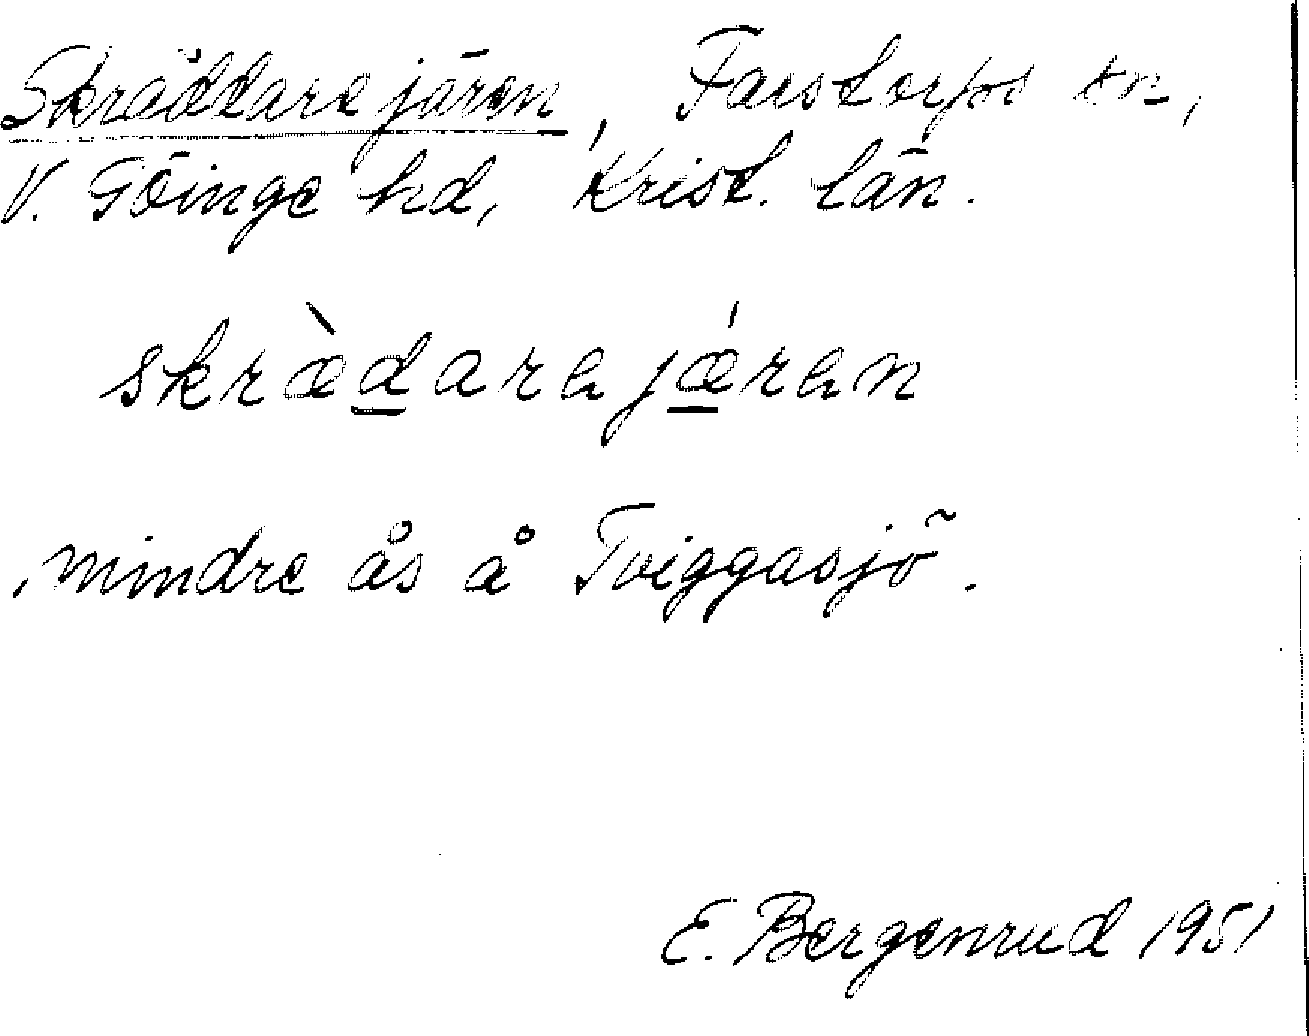 Skräddarejären, Farstorps sn,
V. Göinge hd, Krist. län.
skræ̀d̲arɐjǽ̲rɐn
mindre ås å Tviggasjö.
E. Bergenrud 1951